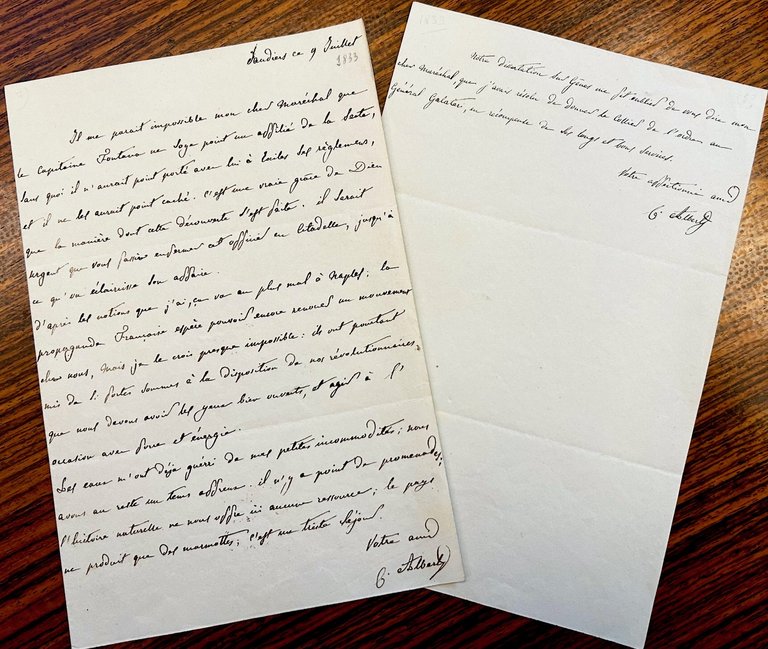 Vaudiers ce 9 Juillet
1833
Il me parait impossible mon cher Maréchal que
le Capitaine Fontana ne soye point un affilié de la Secte,
sans quoi il n'aurait point porté avec lui à Exiles ses règlemens,
et il ne les aurait point caché. C'est une vraie grâce de Dieu
que la manière dont cette découverte s'est faite. il serait
urgent que vous fassiez enfermer cet officier en Citadelle, jusqu'à
ce qu'on éclaircisse son affaire.
D'après les notions que j'ai, ça va au plus mal à Naples: la
propagande Française espère pouvoir encore renouer un mouvement
chez nous, mais je le crois presque impossible: ils ont pourtant
mis de si fortes sommes à la disposition de nos révolutionnaires,
que nous devons avoir les yeux bien ouverts, et agir à l'
occasion avec force et énergie.
Les eaux m'ont déjà guérri de mes petites incommodités; nous
avons au reste un tems affreux. il n'y a point de promenades;
l'histoire naturelle ne nous offre ici aucune ressource; le pays
ne produit que des marmottes; c'est un triste séjour.
Votre ami
C. Albert
1833
Notre disertation sur Gênes me fit oublier de vous dire mon
cher Maréchal que j'avais résolu de donner le Collier de l'ordre au
Général Galateri, en récompense de ses longs et bons services.
Votre affectionné ami
C. Albert